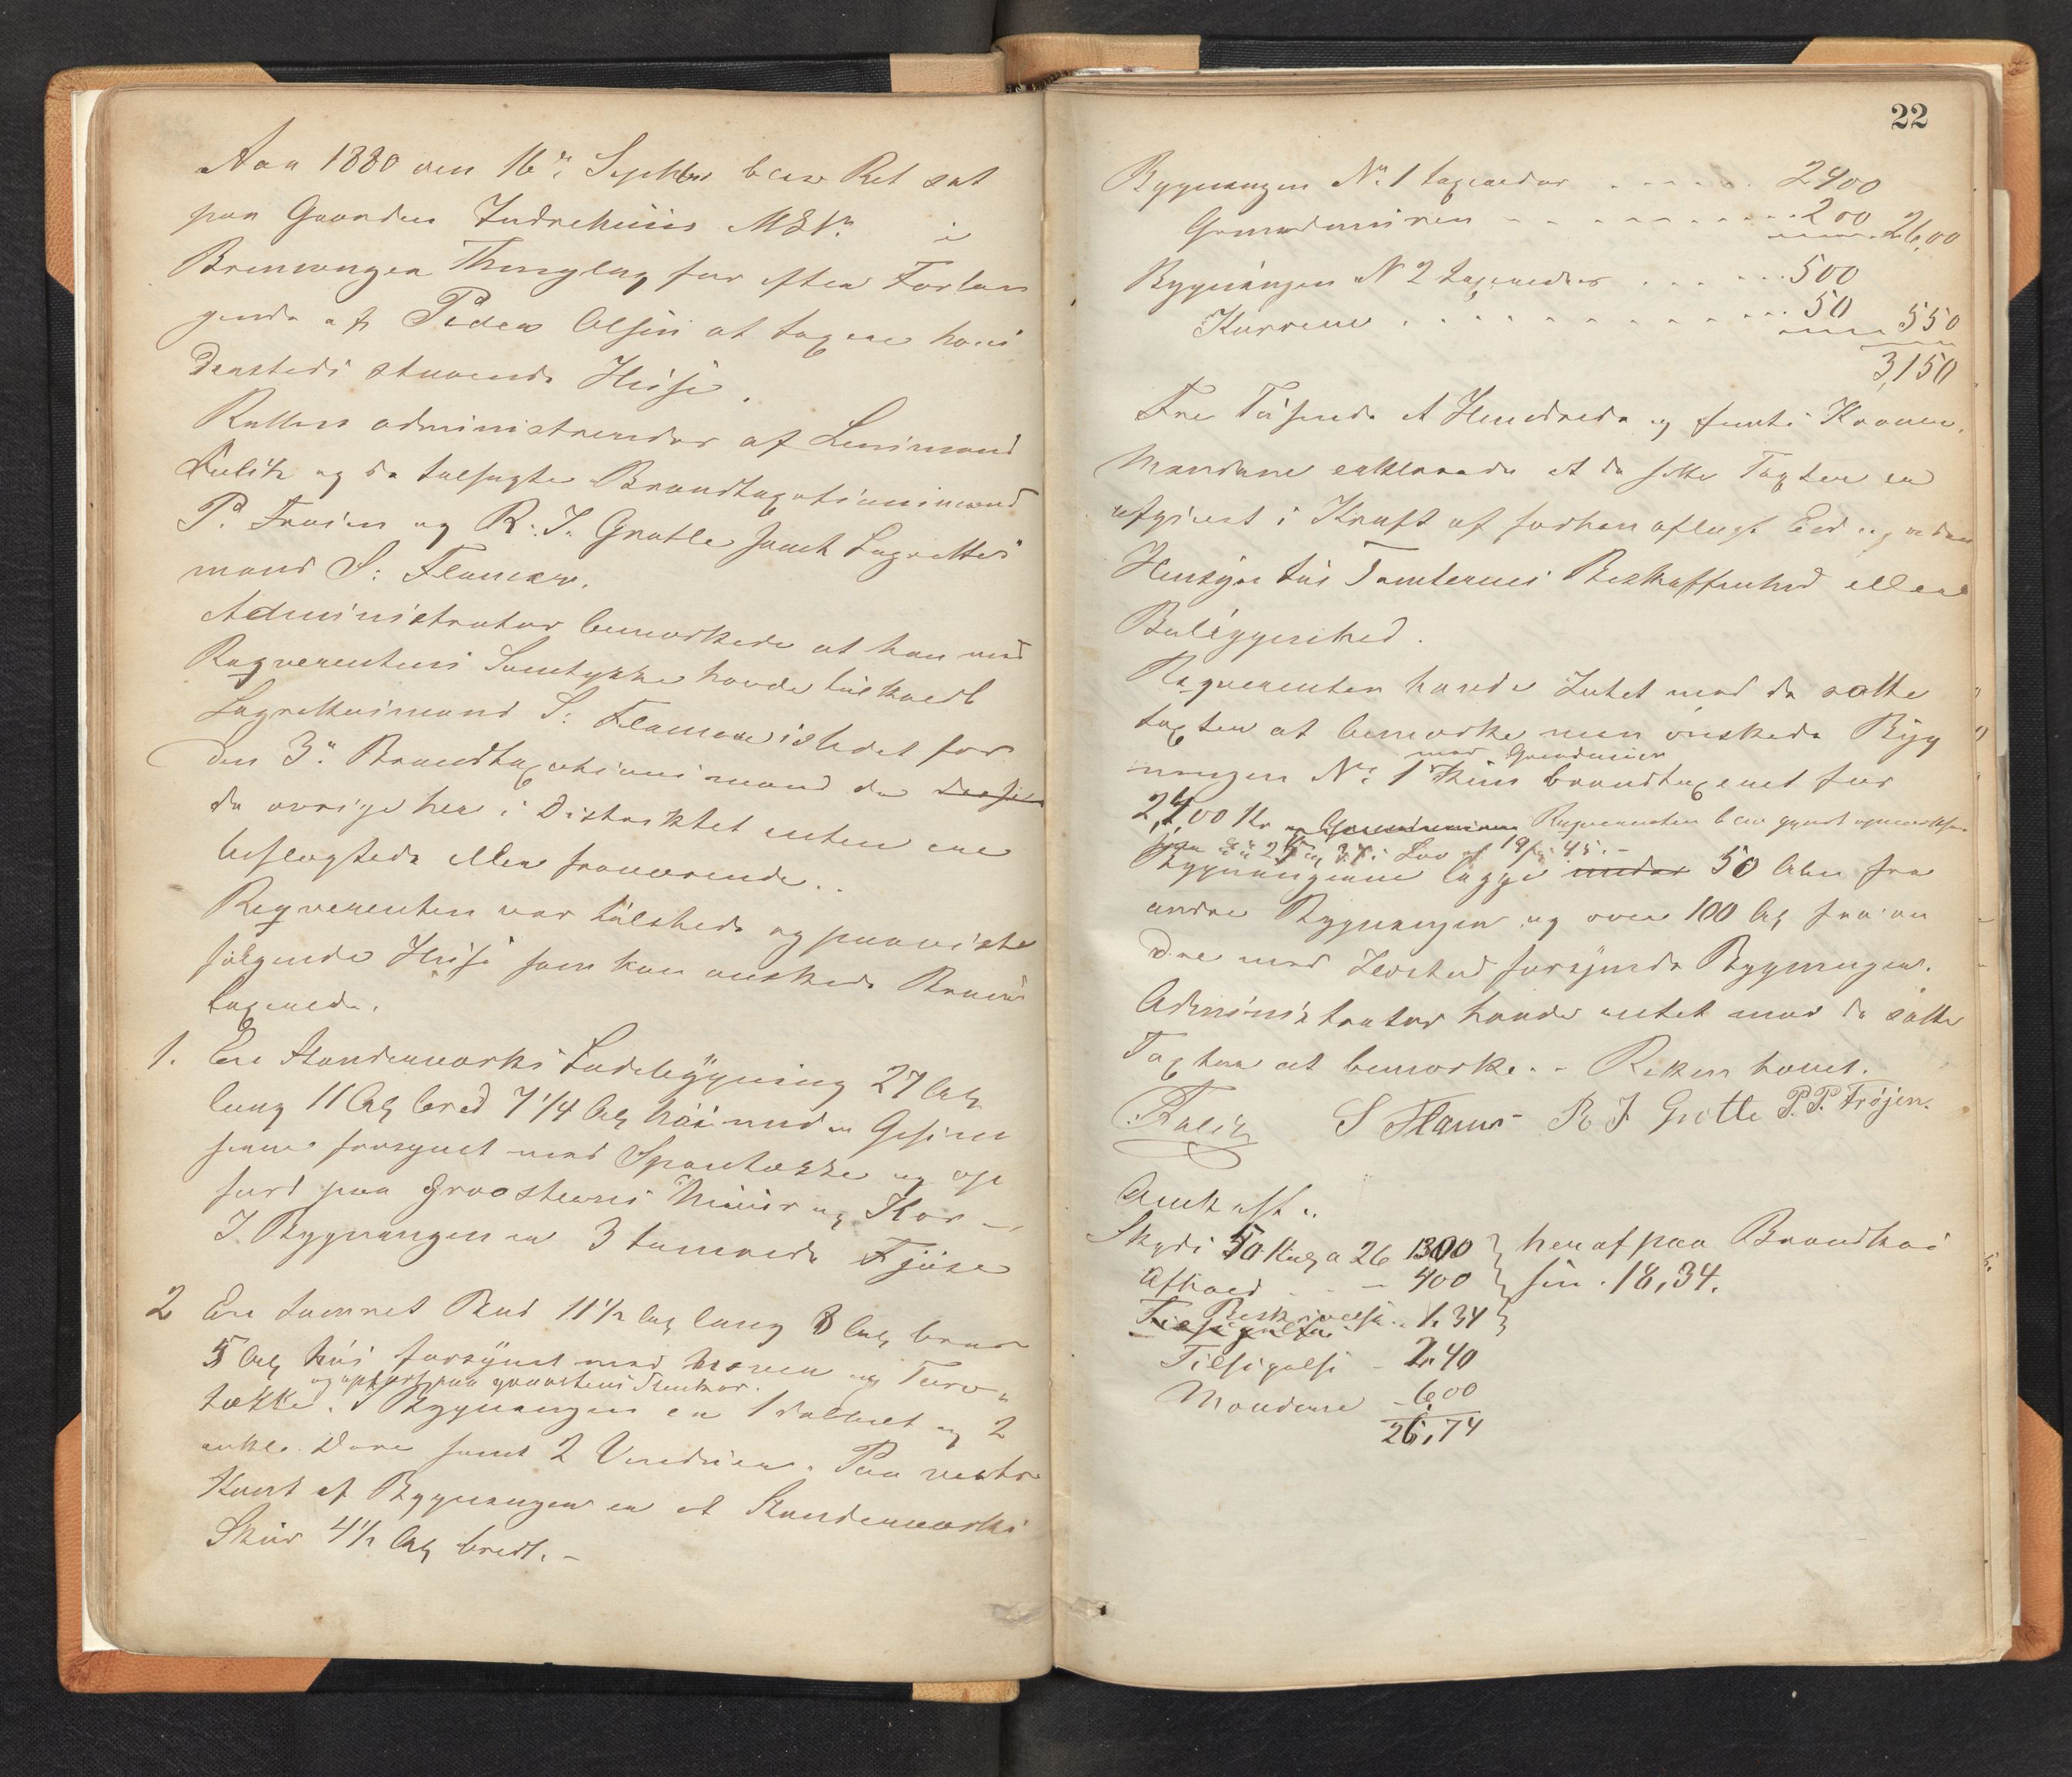 Aar 1880 den 16de Septbr blev Ret sat
paa Gaarden Indrehuus M. No i
Bremanger Thinglag for efter Forlan
gende af Peder Olsen at taxere hans
dersteds staaende Huse.
Retten administreredes af Lensmand
Falch og de tilsagte Brandtaxationsmænd
P. Frøien og R. J. Grotle samt Lagrettes
mand S. Flamær.
Administrator bemærkede at han med
Reqverentens Samtykke havde tilkaldt
Lagrettesmand S. Flamær istedet for
den 3die Brandtaxationsmand da disse
de øvrige her i Distriktet enten ere
beslægtede eller fraværende.
Reqverenten var tilstede og paaviste
følgende Huse som han ønskede Brand
taxerede.
1. En Standerværks Ladebygning 27 Al
lang 11 Al bred 7 1/4 Al høi med Gesims
forsynet med Spontække og op
ført paa Graasteens Muur og Kar
I Bygningen er 3 tømrede Fjøse
2 En tømret Bud 11 1/2 Al lang 8 Al bred
5 Al høi forsynet med Næver og Torv
og opført paa graasteens Stenkar.
tække. I Bygningen er 1 dobbelt og 2
enkle Døre samt 2 Vinduer. Paa vestre
Kant af Bygningen er et Standerværks
Skur 4 1/2 Al bredt.
22
Bygningen No 1 taxeredes 2400
Grundmuren 200 2600
Bygningen N 2 taxeredes 500
Karrene 50 550
3,150
Tre Tusende Et Hundrede og femti Kroner.
Mændene erklærede at de satte Taxter er
afgivet i Kraft af forhen aflagt Ed og uden
Hensyn til Tomternes Beskaffenhed eller
Beliggenhed.
Reqverenten havde Intet mod de satte
taxter at bemærke men ønskede Byg
med Grundmur
ningen No 1 kun brandtaxeret for
2,400 Kr og Grundmuren Reqverenten blev gjort opmærksom
paa §§ 25 og 34 i Lov af 19/8 45.
Bygningerne ligge under 50 Alen fra
andre Bygninger og over 100 Al fra an
dre med Ildsted forsynede Bygninger.
Administrator havde intet mod de satte
Taxter at bemærke. Retten hævet.
Falch S Flamær R J Grotle P. P. Frøjen.
Omkost.
Skyds 50 Kilg a 26 1300 } heraf paa Brandkas
Ophold 400 } sen. 18,34.
Beskrivelse 1.34 }
Tilsigelse
Tilsigelse 2.40
Mændene 6,00
26,74